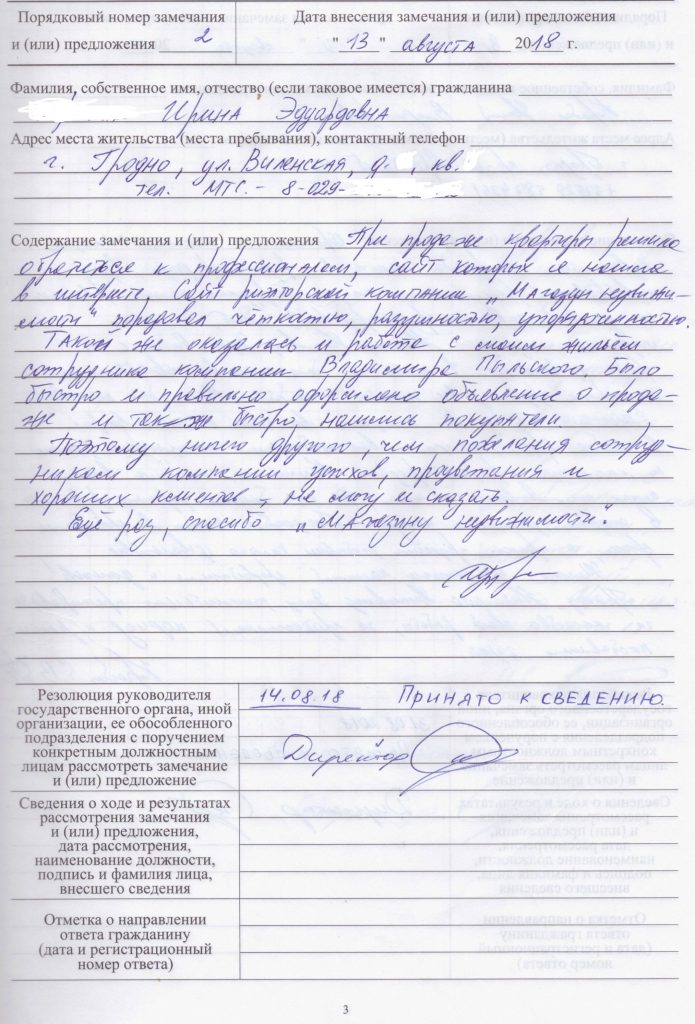 Порядковый номер замечания
и (или) предложения 2
Дата внесения замечания и (или) предложения
"13" августа 2018 г.
Фамилия, собственное имя, отчество (если таковое имеется) гражданина
Ирина Эдуардовна
Адрес места жительства (места пребывания), контактный телефон
г. Гродно, ул. Виленская, д. , кв.
тел. МТС. - 8-029-
Содержание замечания и (или) предложения При продаже квартиры решила
обратиться к профессионалам, сайт которых я нашла
в интернете. Сайт риэлторской компании „Магазин недвижи-
мости" порадовал чёткостью, разумностью, упорядоченностью.
Такой же оказалась и работа с моим жильём
сотрудника компании Владимира Пыльского. Было
быстро и правильно оформлено объявление о прода-
же и так же быстро нашлись покупатели.
Поэтому ничего другого, чем пожелания сотруд-
никам компании успехов, процветания и
хороших клиентов, не могу и сказать.
Ещё раз, спасибо „Магазину недвижимости".
Резолюция руководителя
государственного органа, иной
организации, ее обособленного
подразделения с поручением
конкретным должностным
лицам рассмотреть замечание
и (или) предложение
14.08.18 Принято к сведению.
Директор
Сведения о ходе и результатах
рассмотрения замечания
и (или) предложения,
дата рассмотрения,
наименование должности,
подпись и фамилия лица,
внесшего сведения
Отметка о направлении
ответа гражданину
(дата и регистрационный
номер ответа)
3